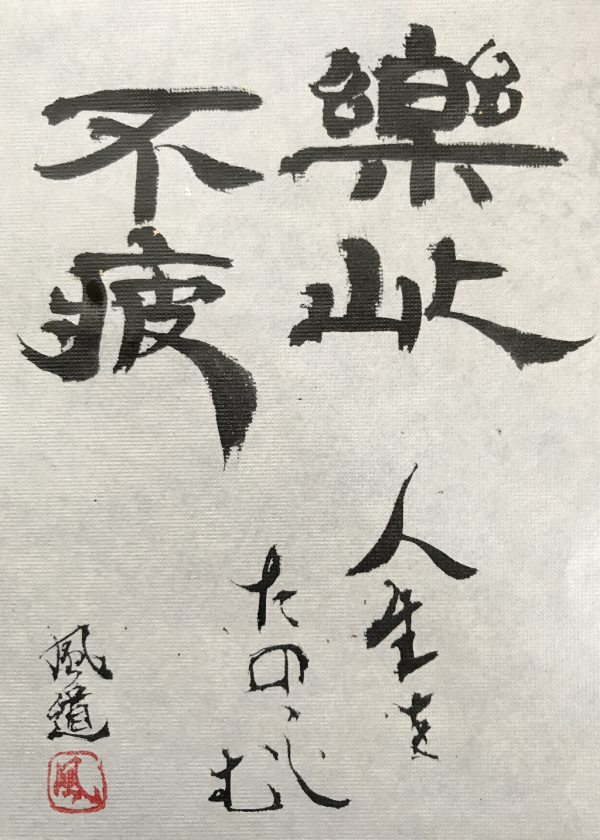 樂此
不疲
人生を
たの
しむ
風道
風